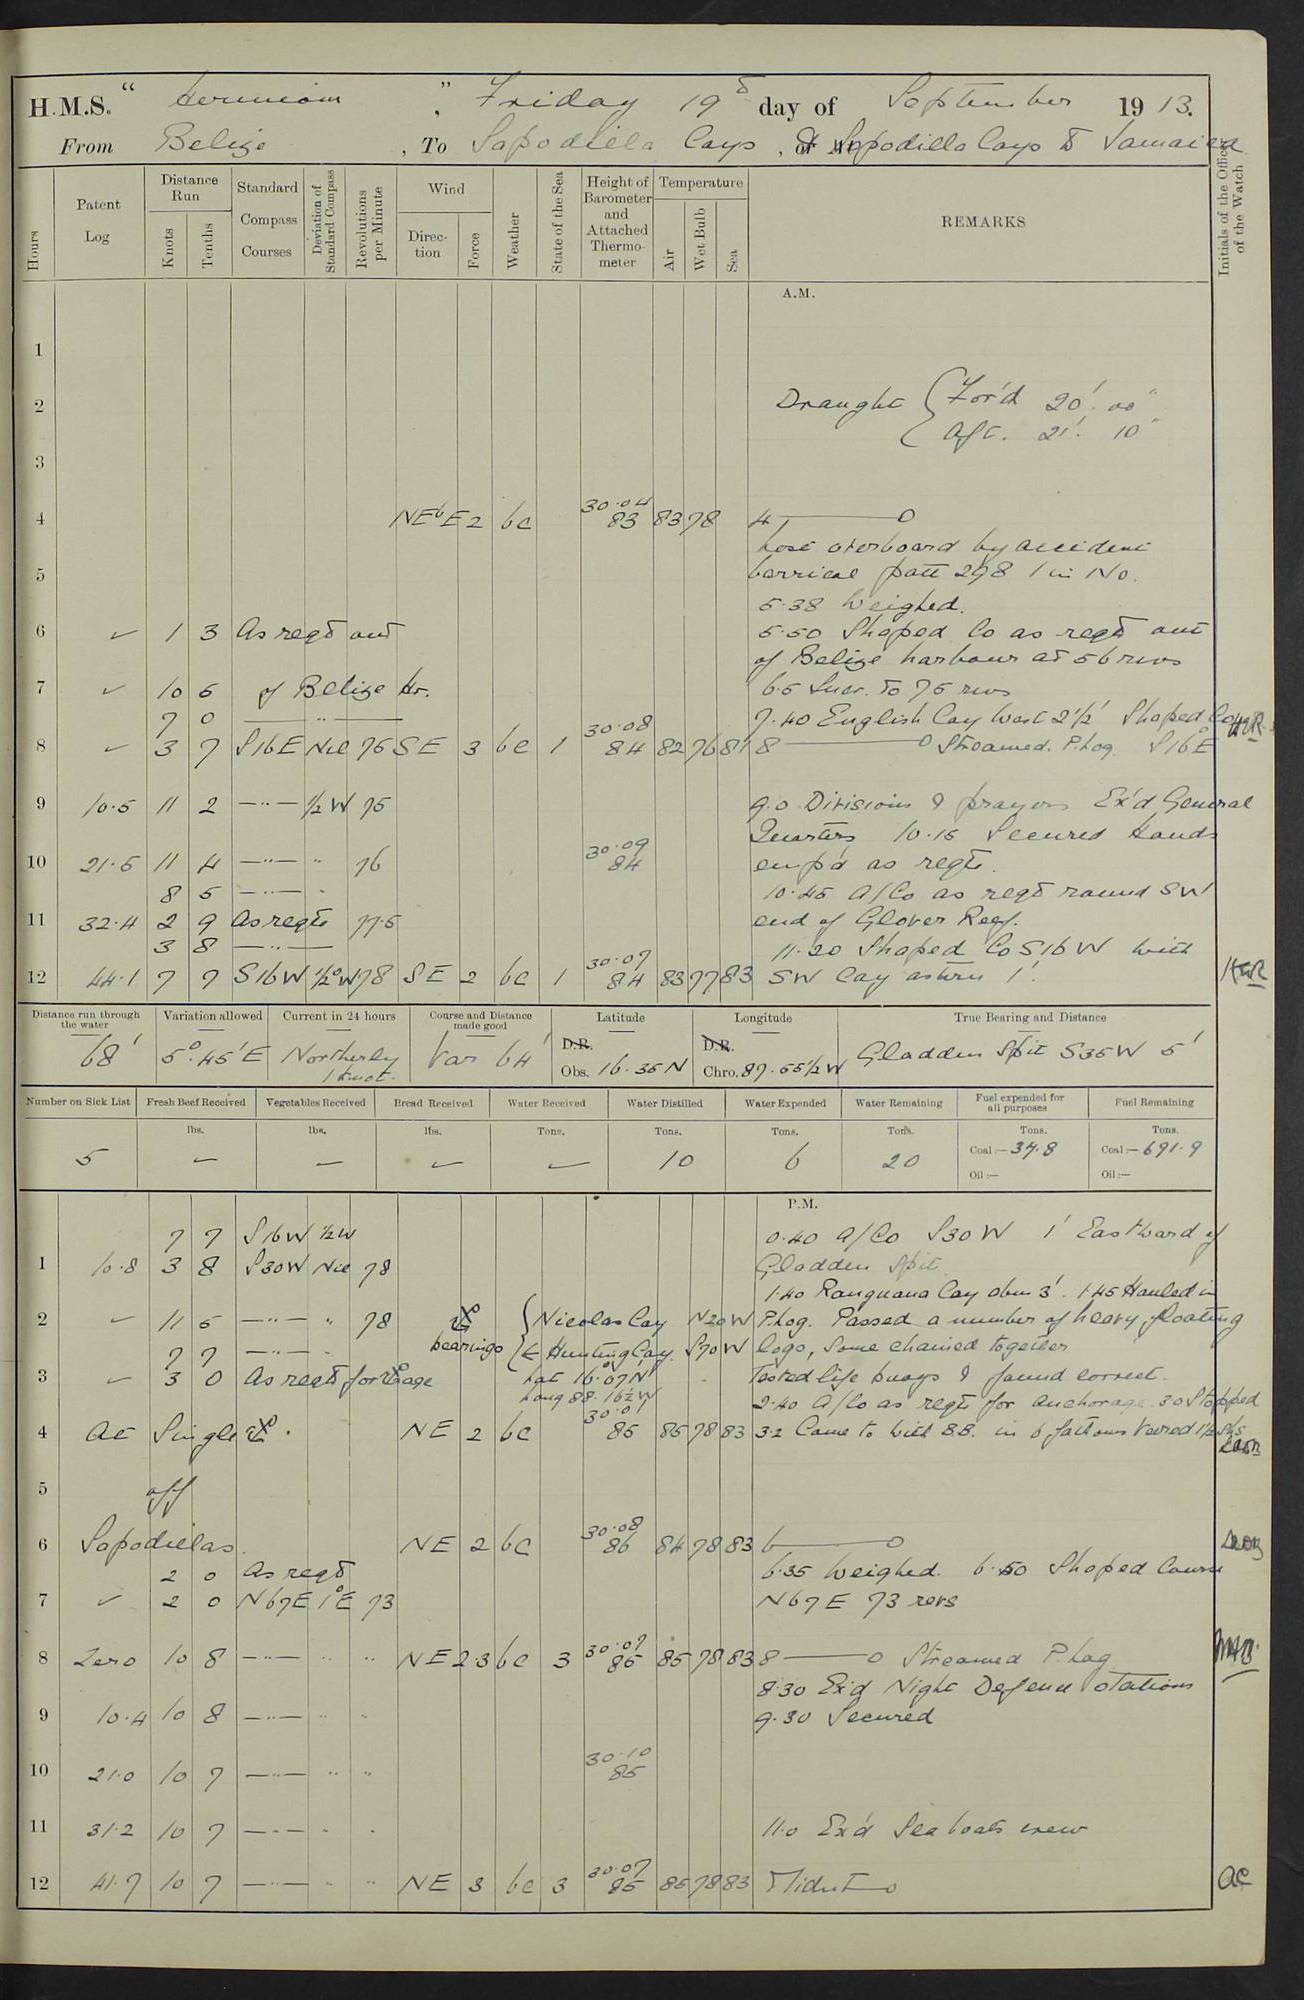 H.M.S. " Hermione ", Friday 19th day of September 1913.
From Belize, To Sapodilla Cays, & Sapodilla Cays to Jamaica
Hours
Patent Log
Distance Run
Knots
Tenths
Standard Compass Courses
Deviation of Standard Compass
Revolutions per Minute
Wind
Direction
Force
Weather
State of the Sea
Height of Barometer and Attached Thermometer
Temperature
Air
Wet Bulb
Sea
REMARKS
Initials of the Officer of the Watch
A.M.
1
2 Draught { For'd 20'. 00"
Aft. 21'. 10"
3
4 NEbE 2 bc 30.04 83 83 78 4 ——— 0
Lost overboard by accident
5 barricoe patt 298 1 in No.
5.38 Weighed.
6 ✓ 1 3 As reqd out 5.50 Shaped Co as reqd out
of Belize harbour at 56 revs
7 ✓ 10 5 of Belize Hr. 6.5 Incr. to 75 revs
7 0 —— " —— 7.40 English Cay West 2½' Shaped Co
8 ✓ 3 7 S16E Nil 75 SE 3 bc 1 30.08 84 82 76 81 8 ——— 0 Streamed P.log S16°E
9 10.5 11 2 — " — ½W 75 9.0 Divisions & prayers Ex'd General
Quarters 10.15 Secured Hands
10 21.5 11 4 — " — " 76 30.09 84 emp'd as reqte.
8 5 — " — " 10.45 A/Co as reqd round SW
11 32.4 2 9 As reqte 77.5 end of Glover Reef.
3 8 — " — 11.20 Shaped Co S16W with
12 44.1 7 7 S16W ½°W 78 SE 2 bc 1 30.07 84 83 77 83 SW Cay astern 1'.
Distance run through the water
68'
Variation allowed
5°.45'E
Current in 24 hours
Northerly
1 knot.
Course and Distance made good
Var 64'
Latitude
D.R.
Obs. 16.35N
Longitude
D.R.
Chro. 87.55½W
True Bearing and Distance
Gladden Spit S35W 5'
Number on Sick List
5
Fresh Beef Received
lbs.
✓
Vegetables Received
lbs.
✓
Bread Received
lbs.
✓
Water Received
Tons.
✓
Water Distilled
Tons.
10
Water Expended
Tons.
6
Water Remaining
Tons.
20
Fuel expended for all purposes
Tons.
Coal:— 34.8
Oil:—
Fuel Remaining
Tons.
Coal:— 691.9
Oil:—
P.M.
7 7 S16W ½W 0.40 A/Co S30W 1' Eastward of
1 10.8 3 8 S30W Nil 78 Gladden Spit
1.40 Ranguana Cay abm 3'. 1.45 Hauled in
2 ✓ 11 5 — " — " 78 bearings { Nicolas Cay N20W P.log. Passed a number of heavy floating
7 7 — " — " Hunting Cay. S70W logs, some chained together
3 ✓ 3 0 As reqd for age Lat 16.07N Tested life buoys & found correct.
Long 88.16½W 2.40 A/Co as reqte for anchorage. 3.0 Stopped
4 At Single NE 2 bc 30.01 85 85 78 83 3.2 Came to with B.B. in 6 fathoms Veered 1½ shs
5 off
6 Sapodillas. NE 2 bc 30.08 86 84 78 83 6 ——— 0
2 0 As reqd 6.35 Weighed. 6.50 Shaped Course
7 ✓ 2 0 N67E 1°E 73 N67E 73 revs
8 Zero 10 8 — " — " " NE 2.3 bc 3 30.07 85 85 78 83 8 ——— 0 Streamed P.log
8.30 Ex'd Night Defence Stations
9 10.4 10 8 — " — " " 9.30 Secured
10 21.0 10 7 — " — " " 30.10 85
11 31.2 10 7 — " — " " 11.0 Ex'd Sea boats crew
12 41.7 10 7 — " — " " NE 3 bc 3 30.07 85 85 78 83 Midnt — 0